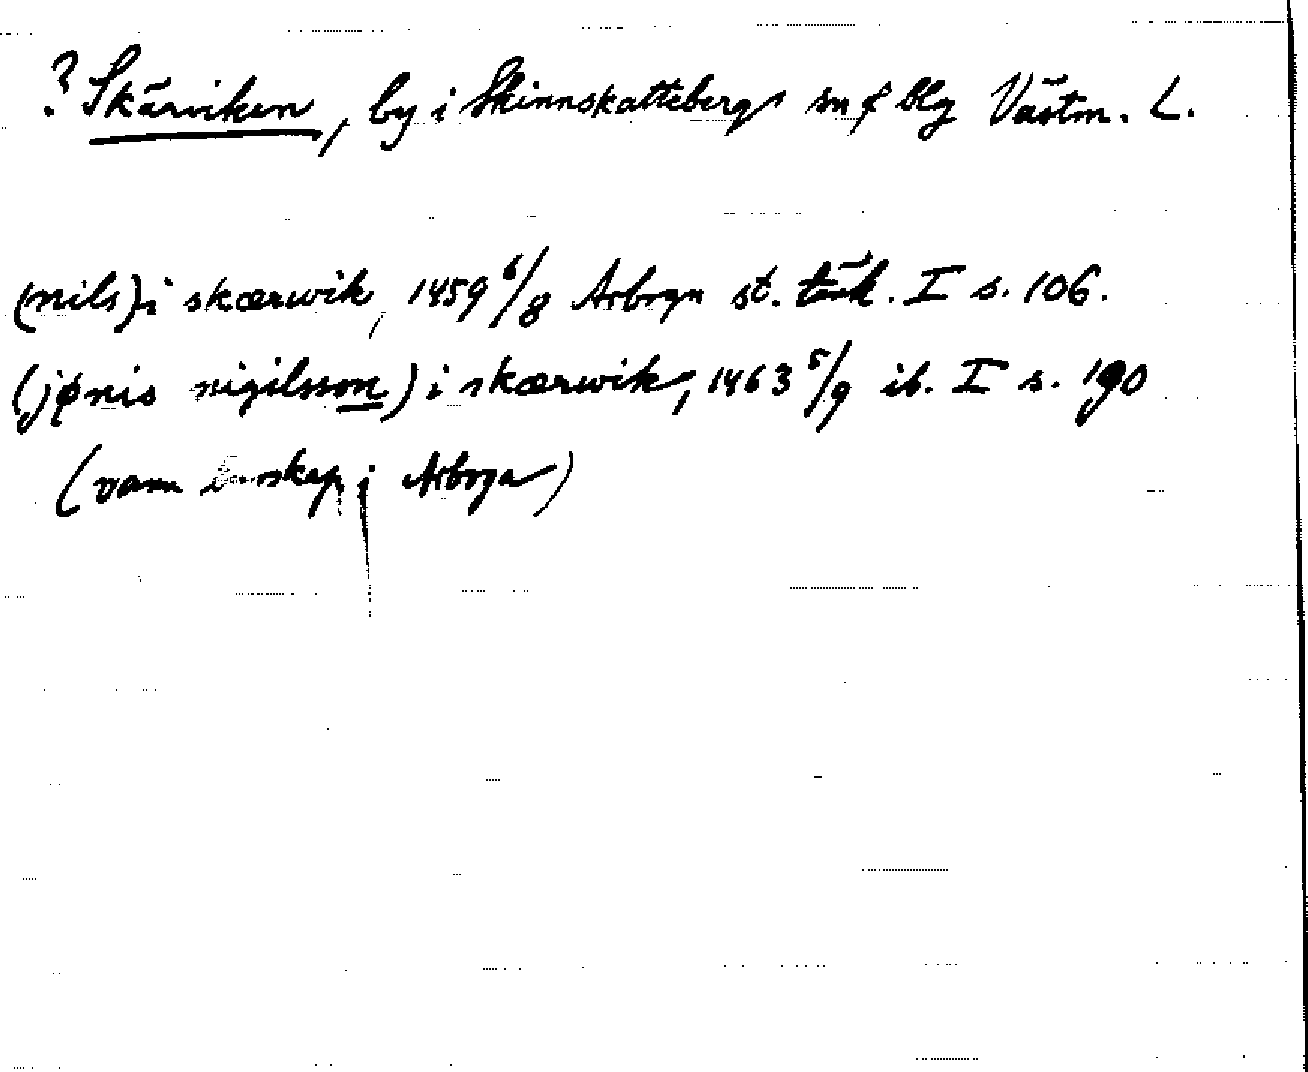 ? Skärviken, by i Skinnskattebergs sn o blg Västm. L.
(nils) i skærwik, 1459 6/8 Arboga st. tänk. I s. 106.
(jønis nigilsson) i skærwik, 1463 5/9 ib. I s. 190
(vann i Arboga)